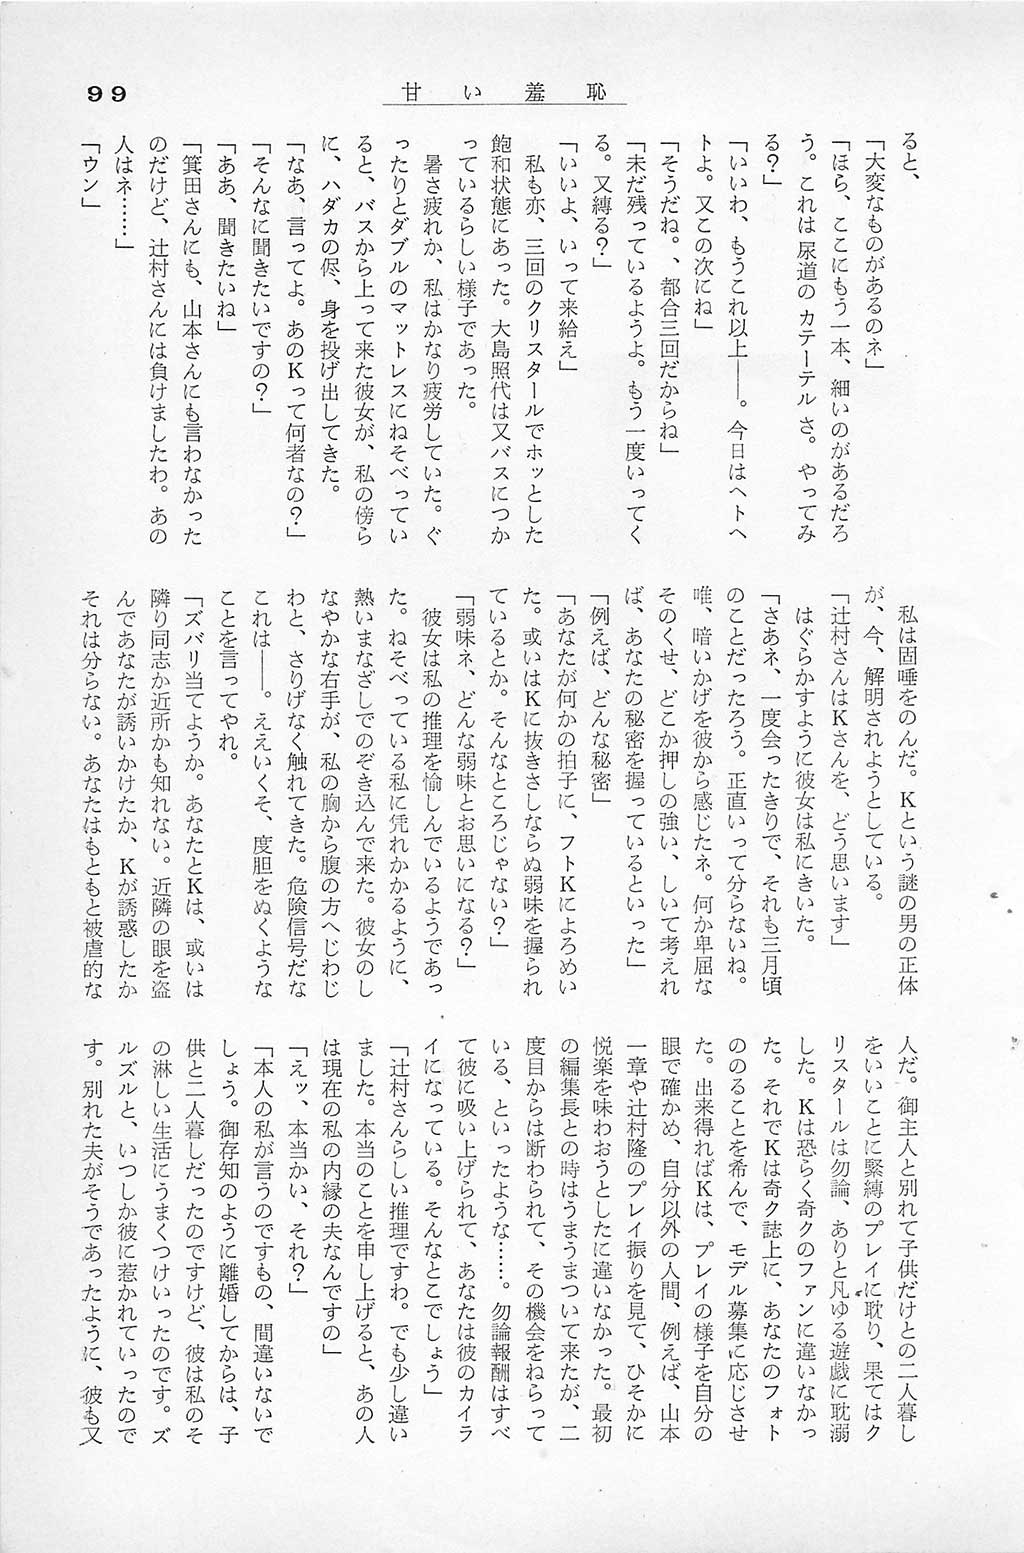 99
甘い羞恥
ると、
「大変なものがあるのネ」
「ほら、ここにもう一本、細いのがあるだろ
う。これは尿道のカテーテルさ。やってみ
る？」
「いいわ、もうこれ以上――。今日はヘトヘ
トよ。又この次にね」
「そうだね。、都合三回だからね」
「未だ残っているようよ。もう一度いってく
る。又縛る？」
「いいよ、いって来給え」
私も亦、三回のクリスタールでホッとした
飽和状態にあった。大島照代は又バスにつか
っているらしい様子であった。
暑さ疲れか、私はかなり疲労していた。ぐ
ったりとダブルのマットレスにねそべってい
ると、バスから上って来た彼女が、私の傍ら
に、ハダカの侭、身を投げ出してきた。
「なあ、言ってよ。あのKって何者なの？」
「そんなに聞きたいですの？」
「ああ、聞きたいね」
「箕田さんにも、山本さんにも言わなかった
のだけど、辻村さんには負けましたわ。あの
人はネ……」
「ウン」
私は固唾をのんだ。Kという謎の男の正体
が、今、解明されようとしている。
「辻村さんはKさんを、どう思います」
はぐらかすように彼女は私にきいた。
「さあネ、一度会ったきりで、それも三月頃
のことだったろう。正直いって分らないね。
唯、暗いかげを彼から感じたネ。何か卑屈な
そのくせ、どこか押しの強い、しいて考えれ
ば、あなたの秘密を握っているといった」
「例えば、どんな秘密」
「あなたが何かの拍子に、フトKによろめい
た。或いはKに抜きさしならぬ弱味を握られ
ているとか。そんなところじゃない？」
「弱味ネ、どんな弱味とお思いになる？」
彼女は私の推理を愉しんでいるようであっ
た。ねそべっている私に凭れかかるように、
熱いまなざしでのぞき込んで来た。彼女のし
なやかな右手が、私の胸から腹の方へじわじ
わと、さりげなく触れてきた。危険信号だな
これは――。ええいくそ、度胆をぬくような
ことを言ってやれ。
「ズバリ当てようか。あなたとKは、或いは
隣り同志か近所かも知れない。近隣の眼を盗
んであなたが誘いかけたか、Kが誘惑したか
それは分らない。あなたはもともと被虐的な
人だ。御主人と別れて子供だけとの二人暮し
をいいことに緊縛のプレイに耽り、果てはク
リスタールは勿論、ありと凡ゆる遊戯に耽溺
した。Kは恐らく奇クのファンに違いなかっ
た。それでKは奇ク誌上に、あなたのフォト
ののることを希んで、モデル募集に応じさせ
た。出来得ればKは、プレイの様子を自分の
眼で確かめ、自分以外の人間、例えば、山本
一章や辻村隆のプレイ振りを見て、ひそかに
悦楽を味わおうとしたに違いなかった。最初
の編集長との時はうまうまついて来たが、二
度目からは断わられて、その機会をねらって
いる、といったような……。勿論報酬はすべ
て彼に吸い上げられて、あなたは彼のカイラ
イになっている。そんなとこでしょう」
「辻村さんらしい推理ですわ。でも少し違い
ました。本当のことを申し上げると、あの人
は現在の私の内縁の夫なんですの」
「えッ、本当かい、それ？」
「本人の私が言うのですもの、間違いないで
しょう。御存知のように離婚してからは、子
供と二人暮しだったのですけど、彼は私のそ
の淋しい生活にうまくつけいったのです。ズ
ルズルと、いつしか彼に惹かれていったので
す。別れた夫がそうであったように、彼も又